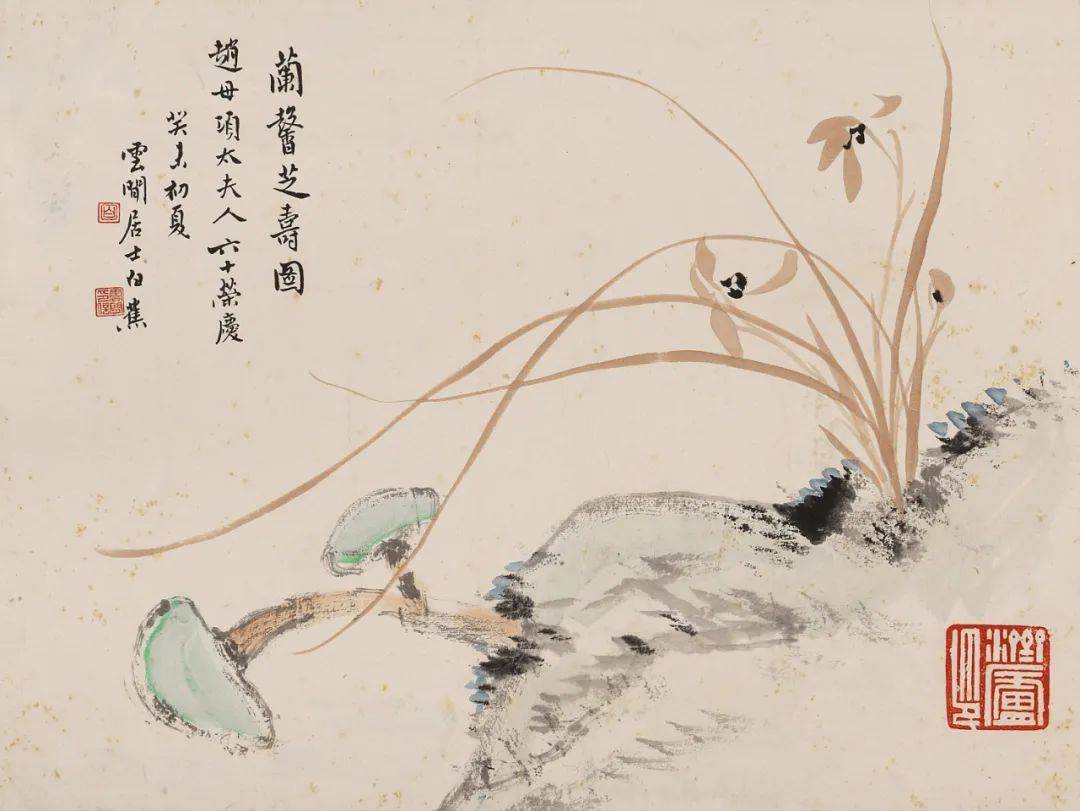 蘭馨芝壽图
趙母項太夫人六十榮慶
癸未初夏
雲間居士白蕉
白